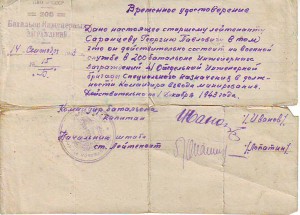 Временное удостоверение
Батальон Инженерных
Заграждений
14 Сентября
№ 15
Дано настоящее старшему лейтенанту
Саранцеву Георгию Павловичу в том
что он действительно состоит на военной
службе в 200 батальоне Инженерных
заграждений Отдельной Инженерной
бригады специального назначения в долж-
ности Командира взвода минирования.
Действительно по 1 1943 года.
Командир батальона
Капитан
/Иванов/
Начальник штаба
ст. Лейтенант
/Лопатин/